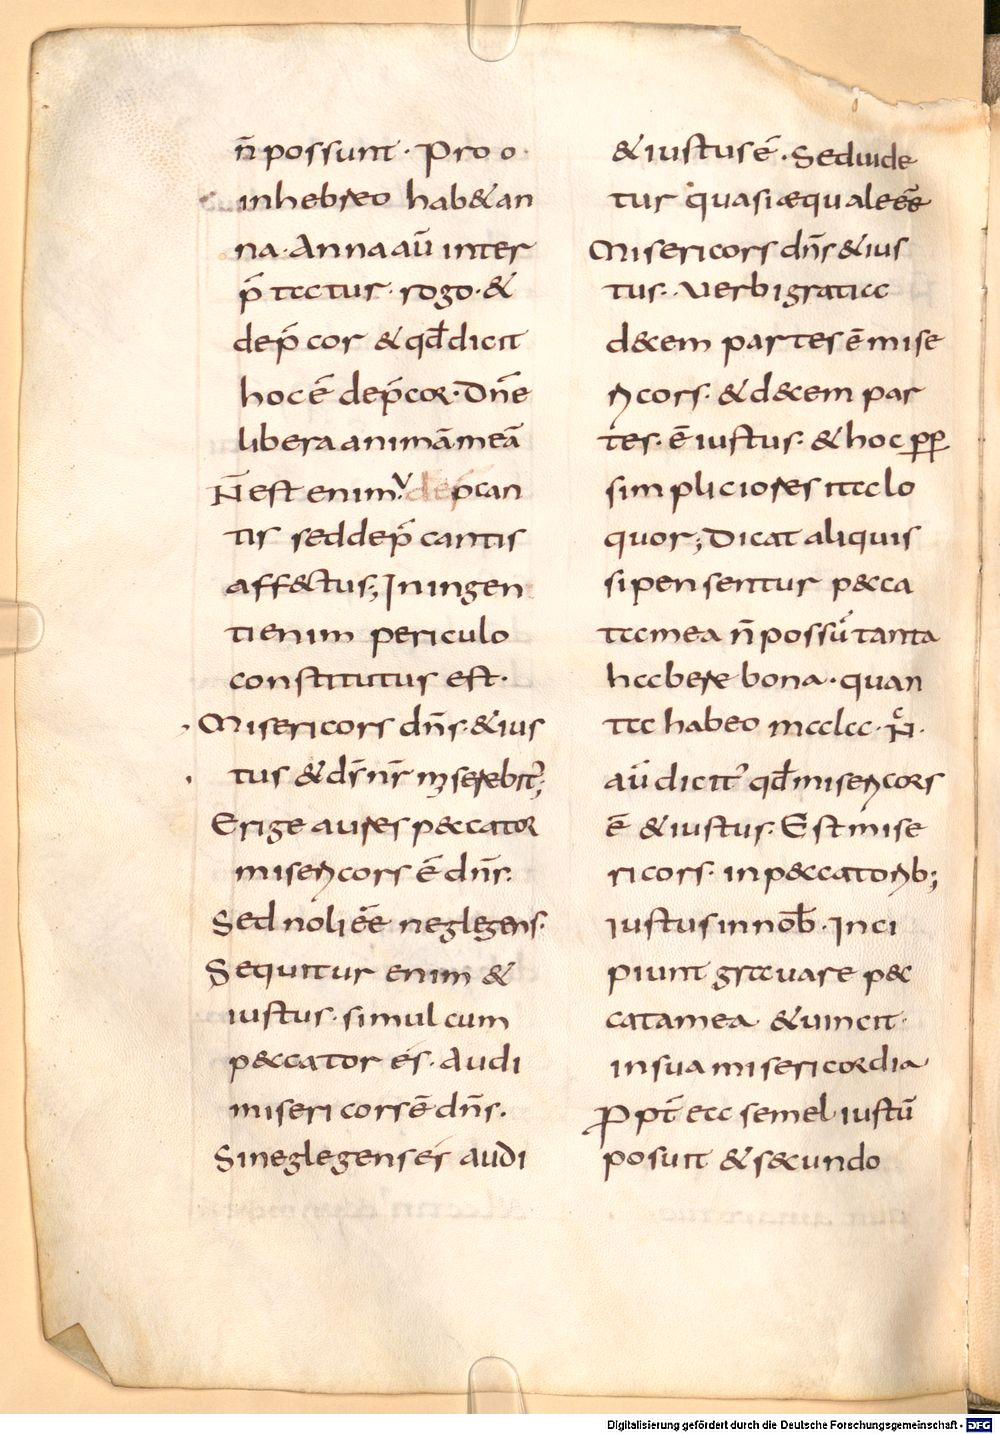 n̄ possunt · Pro o ·
in hebreo hab& an
na · Anna aū inter
p̄tatur · rogo · &
dep̄cor & qđ dicit
hoc ē dep̄cor · Dn̄e
libera animā meā
N̄ est enim dep̄can
tis sed dep̄cantis
aff&ctus; In ingen
ti enim periculo
constitutus est ·
Misericors dn̄s · & ius
tus & ds̄ nr̄ miserebit᷑;
Erige aures peccator
misericors ē dn̄s.
Sed noli eē neglegens ·
Sequitur enim &
iustus · simul cum
peccator es · Audi
misericors ē dn̄s.
Si neglegens es audi
& iustus ē · Sed uide
tur quasi æquale eē
Misericors dn̄s & ius
tus · Uerbi gratia
decem partes ē mise
ricors · & decem par
tes · ē iustus · & hoc pp̱
simpliciores ita lo
quor; Dicat aliquis
si pensentur pecca
ta mea n̄ possū tanta
habere bona · quan
ta habeo mala · N̄ ·
aū dicit᷑ qđ misericors
ē & iustus · Est mise
ricors · in peccatorib;
iustus in nob̄ · Inci
piunt grauare pec
cata mea & uincit ·
in sua misericordia
Ppt̄ ea semel iustū
posuit & secundo
Digitalisierung gefördert durch die Deutsche Forschungsgemeinschaft - DFG